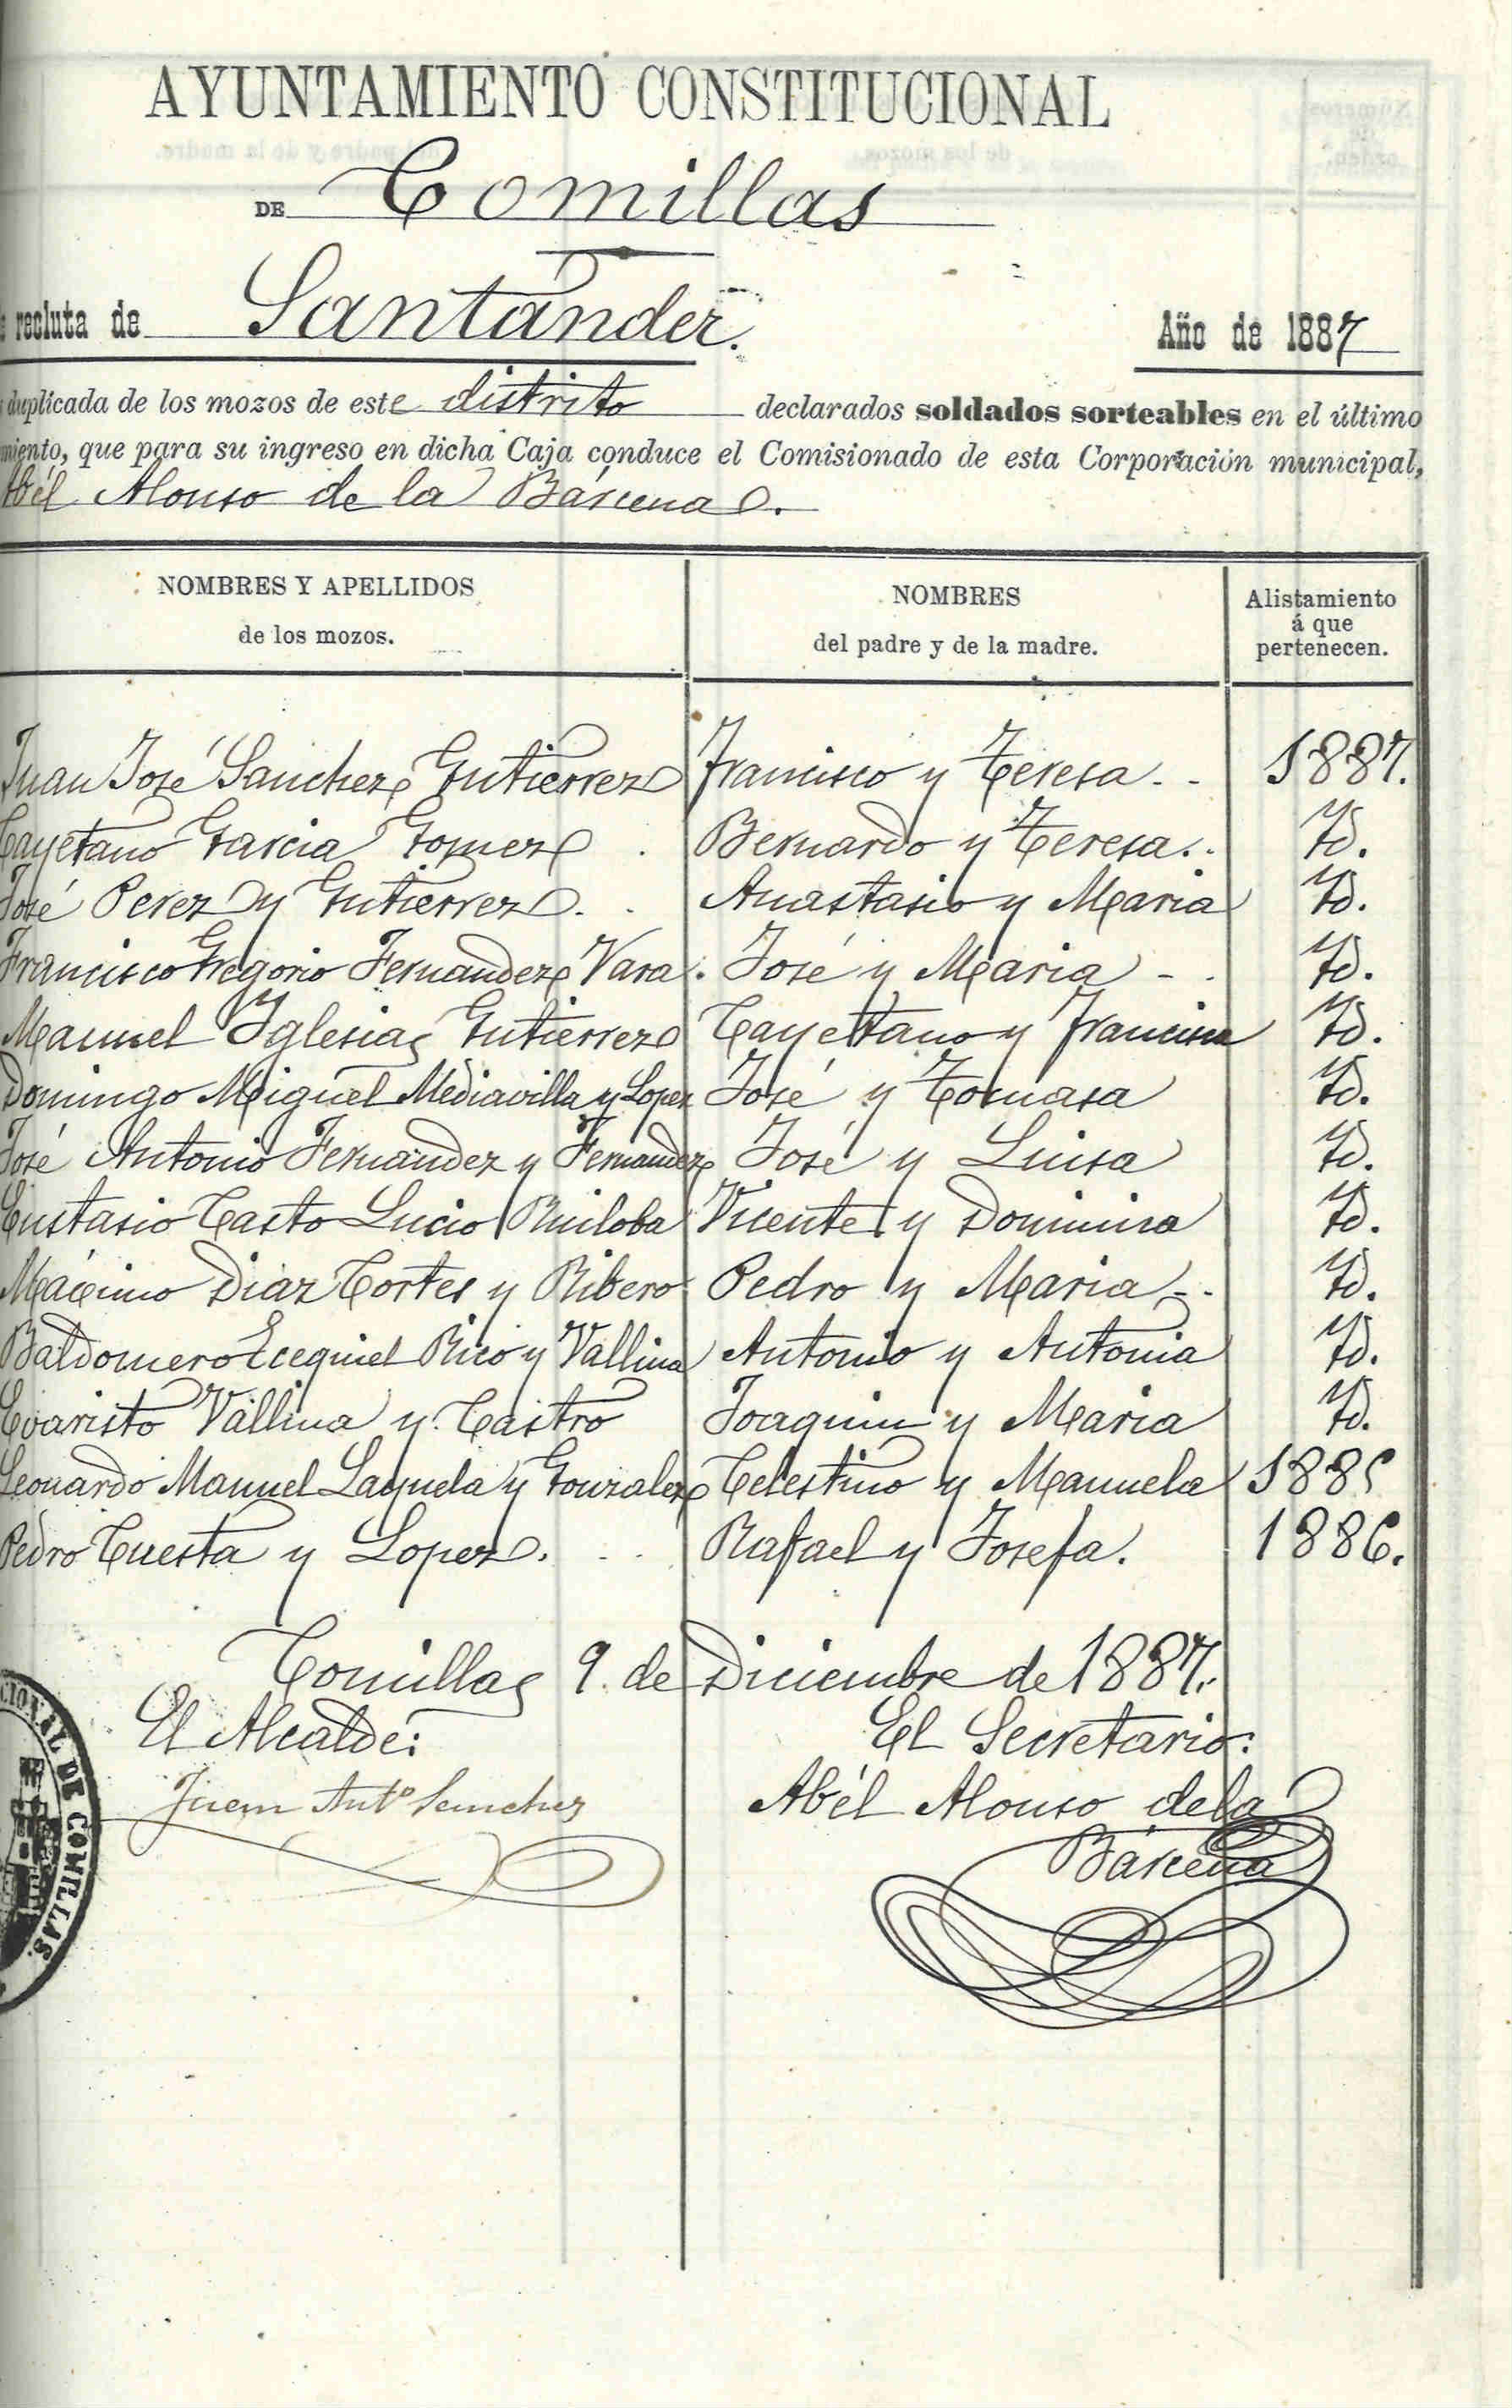 AYUNTAMIENTO CONSTITUCIONAL
DE Comillas
recluta de Santander. Año de 1887
duplicada de los mozos de este distrito declarados soldados sorteables en el último
miento, que para su ingreso en dicha Caja conduce el Comisionado de esta Corporación municipal,
Abél Alonso de la Bárcena.
NOMBRES Y APELLIDOS de los mozos. NOMBRES del padre y de la madre. Alistamiento á que pertenecen.
Juan José Sanchez Gutierrez Francisco y Teresa - - 1887.
Cayetano Garcia Gomez . Bernardo y Teresa. . Id.
José Perez y Gutierrez. . Anastasio y Maria Id.
Francisco Gregorio Fernandez Vara . José y Maria - . Id.
Manuel Iglesias Gutierrez Cayetano y Francisca Id.
Domingo Miguel Mediavilla y Lopez José y Tomasa Id.
José Antonio Fernandez y Fernandez José y Luisa Id.
Eustasio Casto Lucio Ruiloba Vicente y Dominica Id.
Mácsimo Diaz Cortes y Ribero Pedro y Maria - . Id.
Baldomero Ecequiel Rico y Vallina Antonio y Antonia Id.
Evaristo Vallina y Castro Joaquin y Maria Id.
Leonardo Manuel y Gonzalez Celestino y Manuela 1885
Pedro Cuesta y Lopez. . . Rafael y Josefa. 1886.
Comillas 9 de Diciembre de 1887.
El Alcalde: El Secretario:
Juan Antº Sanchez Abél Alonso de la
Bárcena
CIONAL DE COMILLAS.